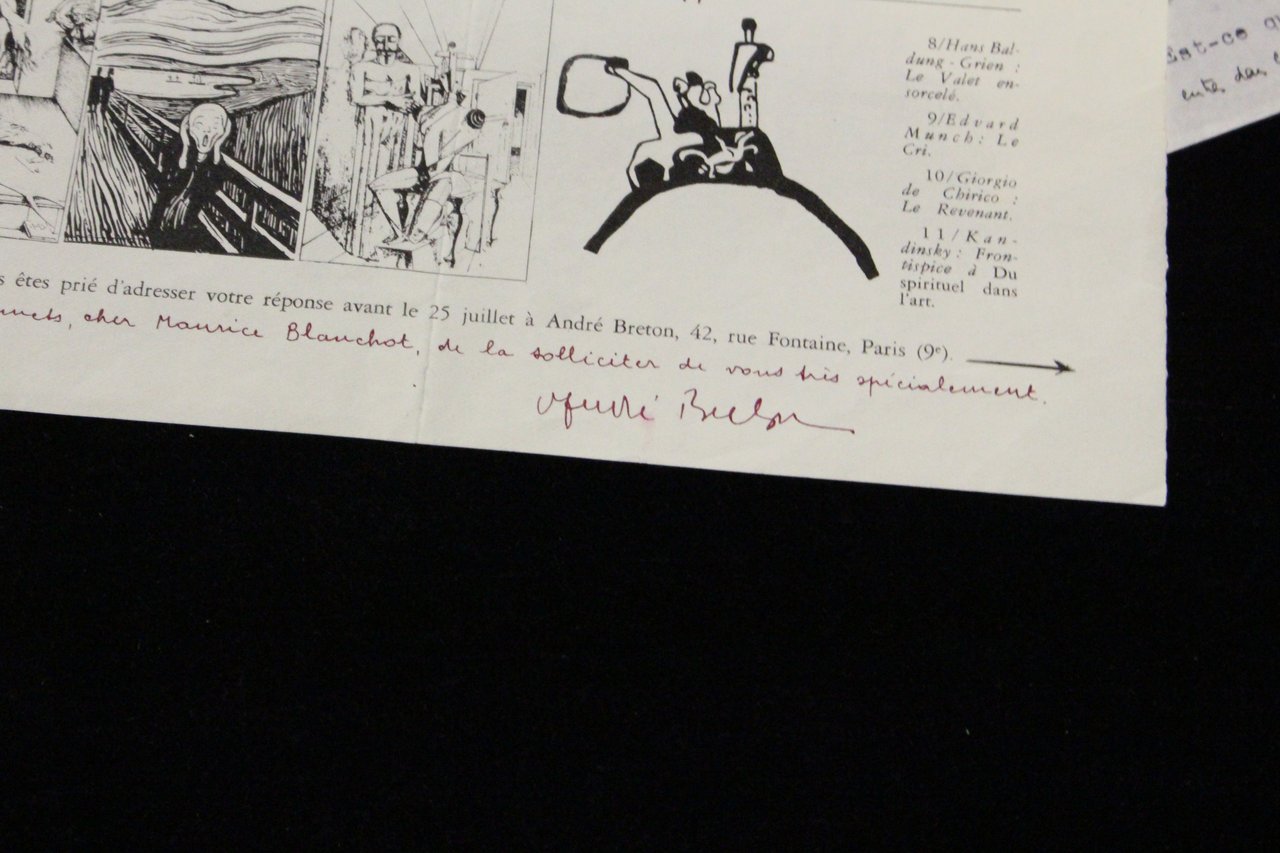 8/Hans Bal-
dung-Grien :
Le Valet en-
sorcelé.
9/Edvard
Munch : Le
Cri.
10/Giorgio
de Chirico :
Le Revenant.
11/Kan-
dinsky : Fron-
tispice à Du
spirituel dans
l'art.
s êtes prié d'adresser votre réponse avant le 25 juillet à André Breton, 42, rue Fontaine, Paris (9e).
cher Maurice Blanchot, de la solliciter de vous très spécialement.
André Breton
Est-ce q